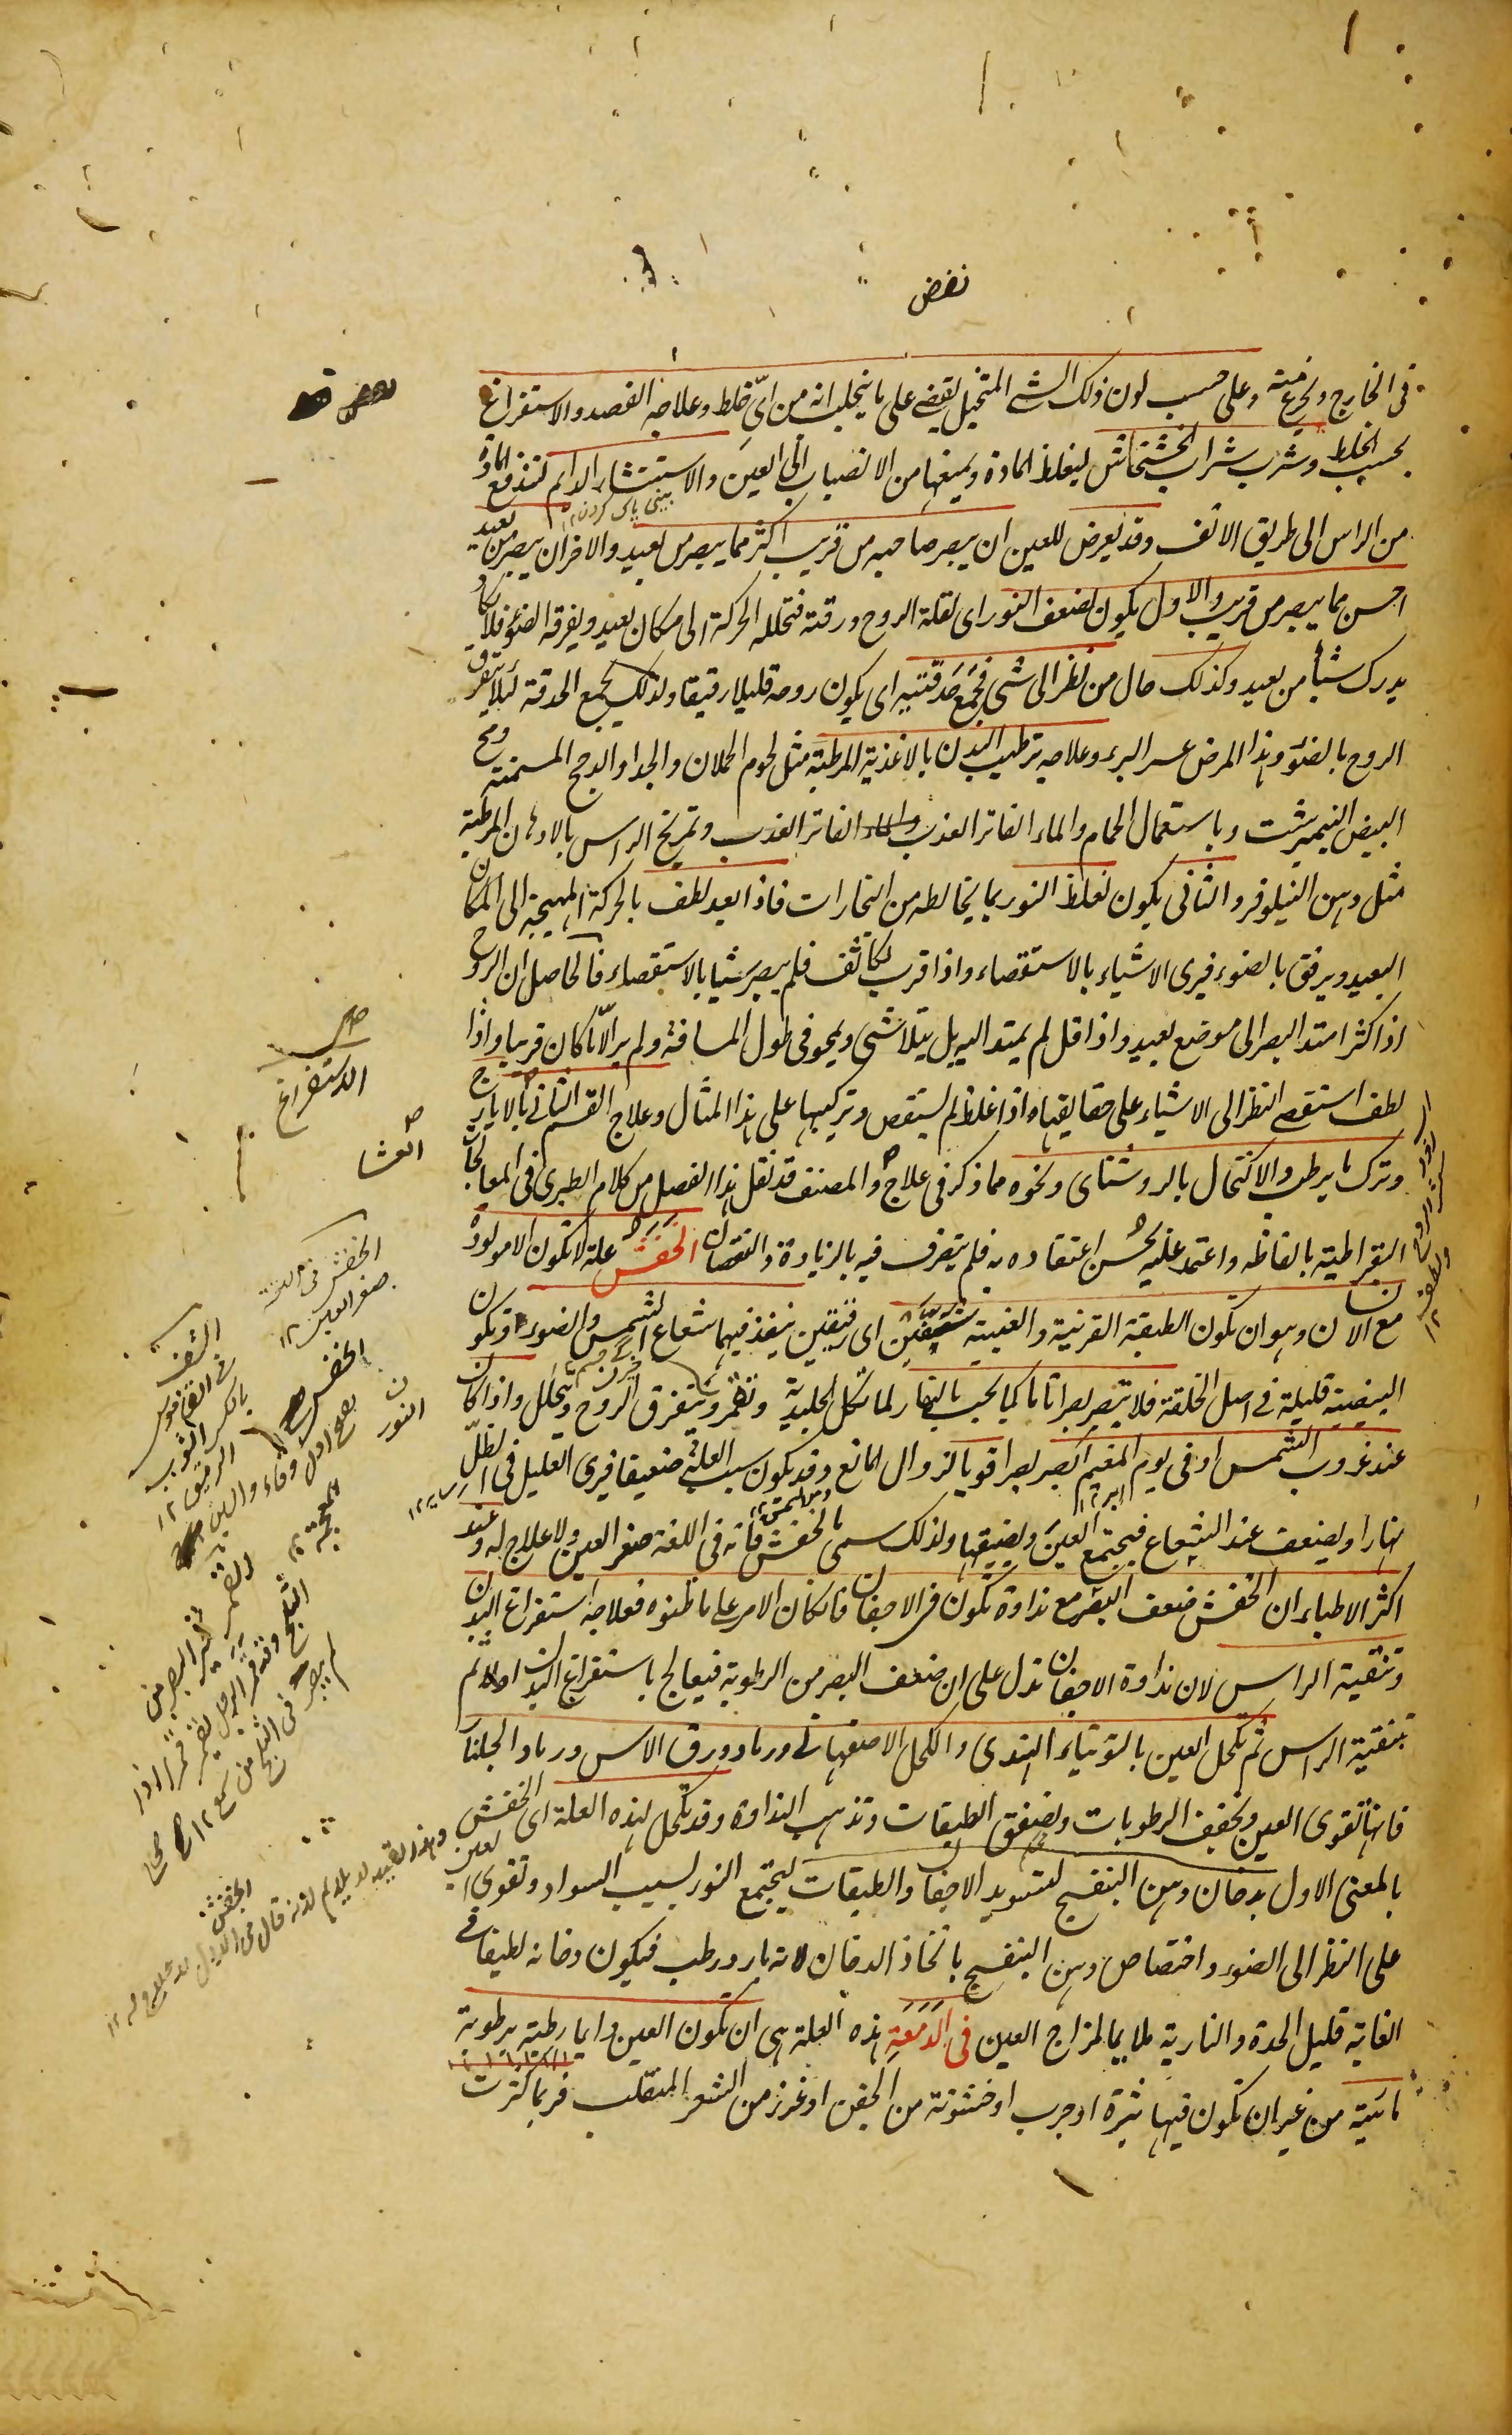 نفض
فى الخارج وعلى حسب لون ذلك الشئ المتخيل يقضے على ما يتخلب انه من اىّ خلط وعلاجه الفصد والاستفراغ
بحسب الخلط وشرب شراب الخشخاش ليغلظ المادة ويمنعها من الانصباب الى العين والاستنشار الدائم لتندفع المادة
بينى پاك كردن ١٢
من الراس الى طريق الانف وقد يعرض للعين ان يبصر صاحبه من قريب اكثر مما يبصر من بعيد والاخر ان يبصر من بعيد
احسن مما يبصر من قريب والاول يكون لضعف النور اى لقلة الروح ورقته فتحلله الحركة الى مكان بعيد ويفرقه الضوء فلا يكاد
يدرك شيأ من بعيد وكذلك حال من نظر الى شئ فجمع حدقتيه اى يكون روحه قليلا رقيقا ولذلك يجمع الحدقة لئلا يتفرق
الروح بالضوء وهذا المرض عسر البرء وعلاجه ترطيب البدن بالاغذية المرطبة مثل لحوم الحملان والجدا والدجج المسمنة ومح
البيض النيمبرشت وباستعمال الحمام والماء الفاتر العذب والماء الفاتر العذب وتمريخ الراس بالادهان المرطبة
مثل دهن النيلوفر والثانى يكون لغلظ النور بما يخالطه من البخارات فاذا بعد لطف بالحركة المهيجة الى المكان
البعيد ويرقق بالضوء فيرى الاشياء بالاستقصاء واذا قرب تكاثف فلم يبصر شيا بالاستقصاء فالحاصل ان الروح
اذا كثر امتد البصر الى موضع بعيد واذا قل لم يمتد اليه بل يتلاشى ويمحو فى طول المسافة ولم ير الّا ما كان قريبا واذا
لطف استقصے النظر الى الاشياء على حقايقها واذا غلظ لم يستقص وتركيبها على هذا المثال وعلاج القسم الثانى بالايارج
وترك ما يرطب والاكتحال بالروشناى ونحوه مما ذكر فى علاج والمصنف قد نقل هذا الفصل من كلام الطبرى فى المعالجات
البقراطية بالفاظه واعتمد عليه لحسن اعتقاده به فلم يتصرف فيه بالزيادة والنقصان الخفش علة لا تكون الا مولودة
مع الانسان وهو ان تكون الطبقة القرنية والعنبية شفتين اى رقيقتين ينفذ فيهما شعاع الشمس والضوء وتكون
البيضية قليلة فى اصل الخلقة فلا يبصر بصرا تاما كما يجب بالنهار لما تكل الجليدية وتقمر ويتفرق الروح ويتحلل واذا كان
عند غروب الشمس او فى يوم المغيم ابصر بصرا قويا لزوال المانع وقد يكون سبب العلة ضعيفا فيرى العليل فى الظل
نهارا ويضعف عند الشعاع فيجتمع العين ويضيقها ولذلك سمى بالخفش فانه فى اللغة صغر العين ولا علاج له وعند
اكثر الاطباء ان الخفش ضعف البصر مع نداوة تكون فى الاجفان فان كان الامر على ما ظنوه فعلاجه استفراغ البدن
وتنقية الراس لان نداوة الاجفان تدل على ان ضعف البصر من الرطوبة فيعالج باستفراغ البدن اولا ثم
بتنقية الراس ثم تكحل العين بالتوتياء الهندى والكحل الاصفهانى ورماد ورق الاس ورماد الجلنار
فانها تقوى العين وتجفف الرطوبات وتصفق الطبقات وتذهب النداوة وقد تكحل لهذه العلة اى الخفش
بالمعنى الاول بدخان دهن البنفسج لتسويد الاجفان والطبقات ليجتمع النور بسبب السواد وتقوى العين
على النظر الى الضوء واختصاص دهن البنفسج باتخاذ الدخان لانه بارد رطب فيكون دخانه لطيفا فى
الغاية قليل الحدة والنارية ملايما لمزاج العين فى الدَمَعَةِ هذه العلة هى ان تكون العين دايما رطبة برطوبة
مائية من غير ان تكون فيها بثرة او جرب او خشونة من الجفن او غرز من الشعر المنقلب فربما كثرت
الاستفراغ
العشا
النور
الخفش
صغر العين ١٢
الشف
فى القاموس
بالكسر الثوب
الرقيق ١٢